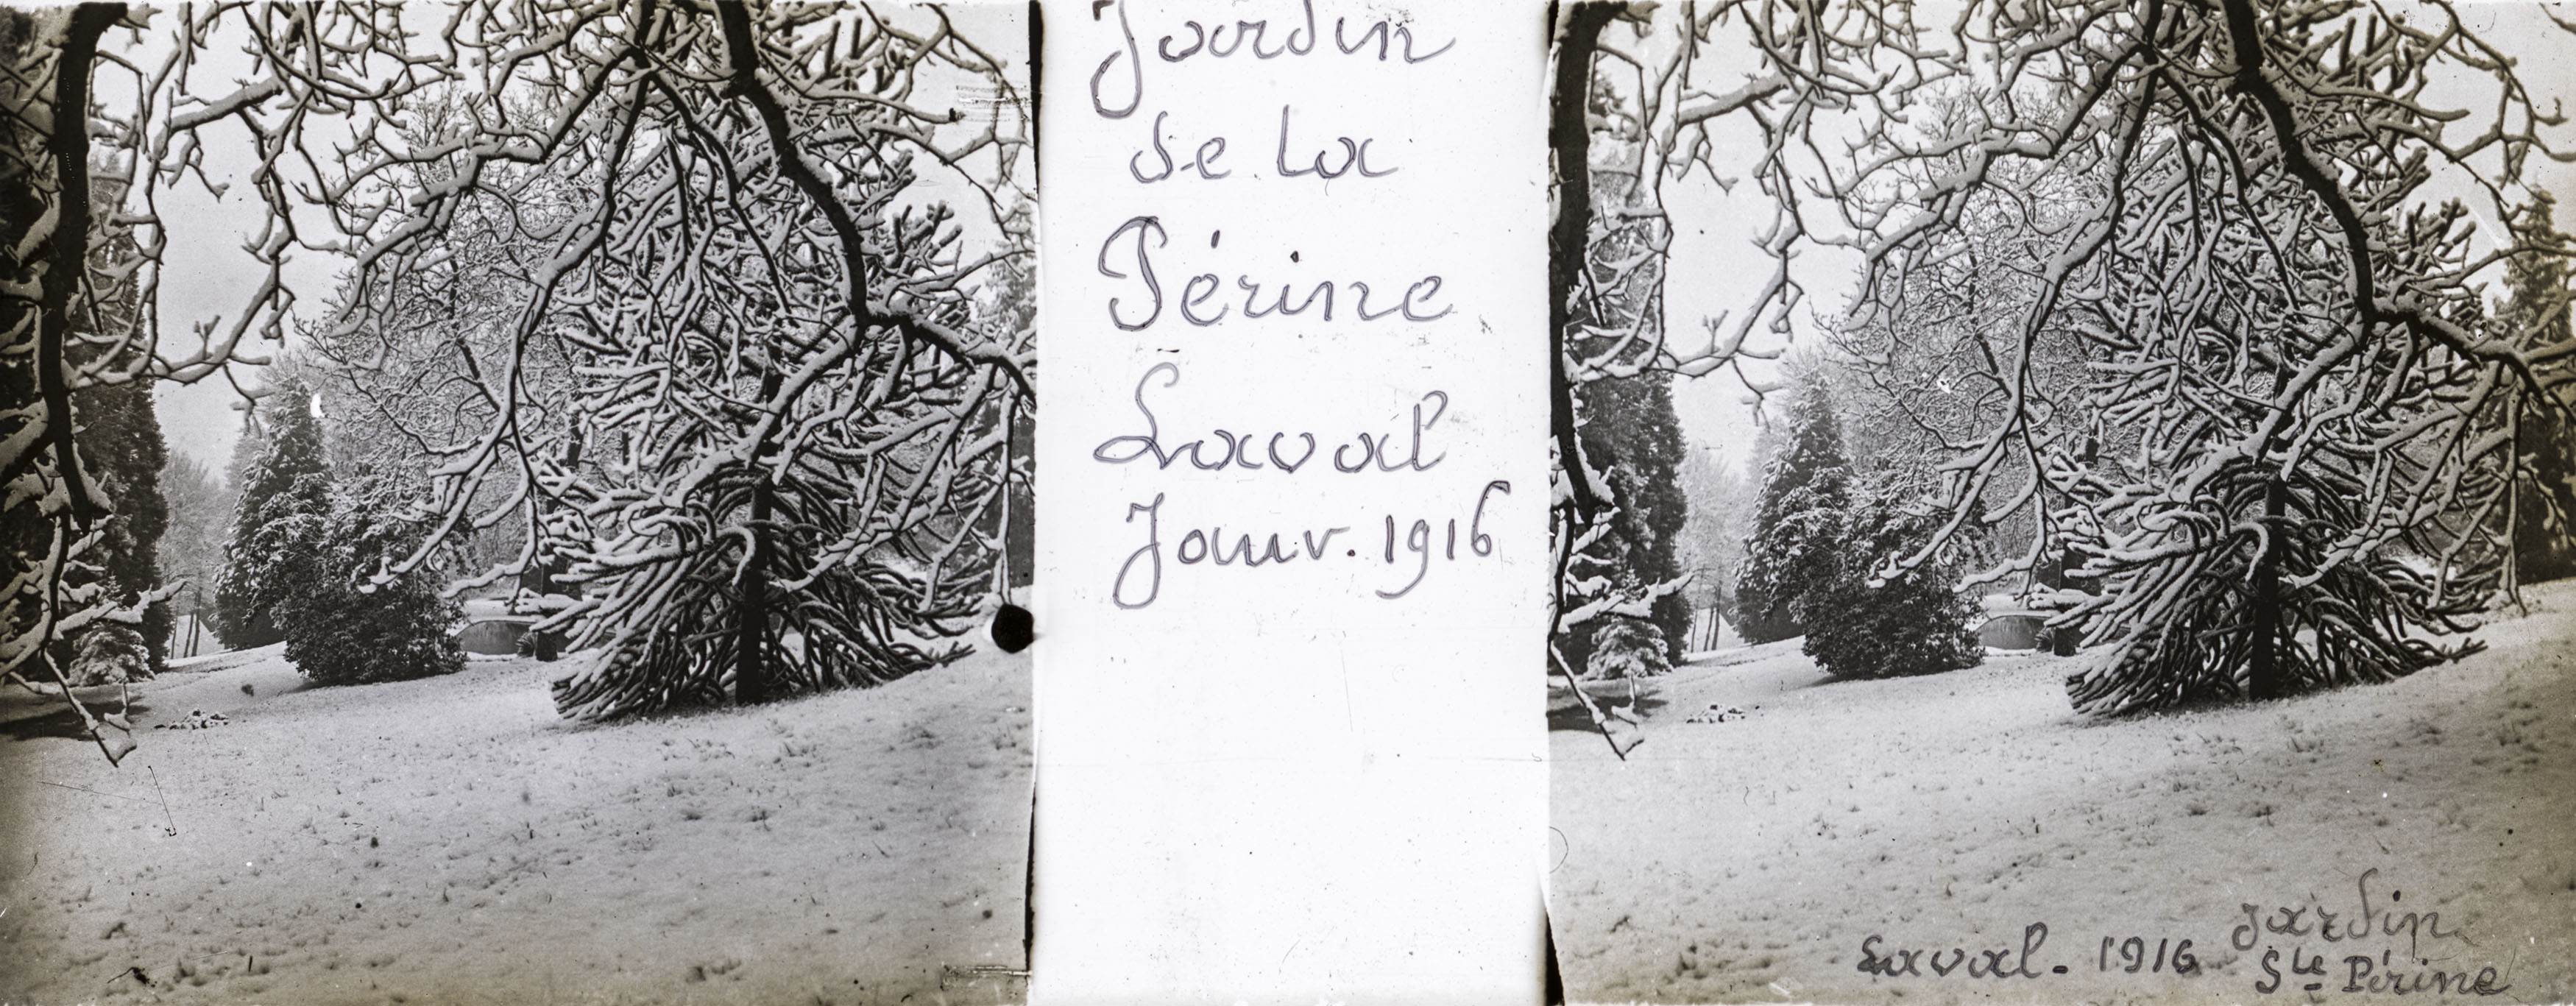 Jardin
de la
Périne
Laval
Janv. 1916
Laval - 1916
Jardin
Ste Périne